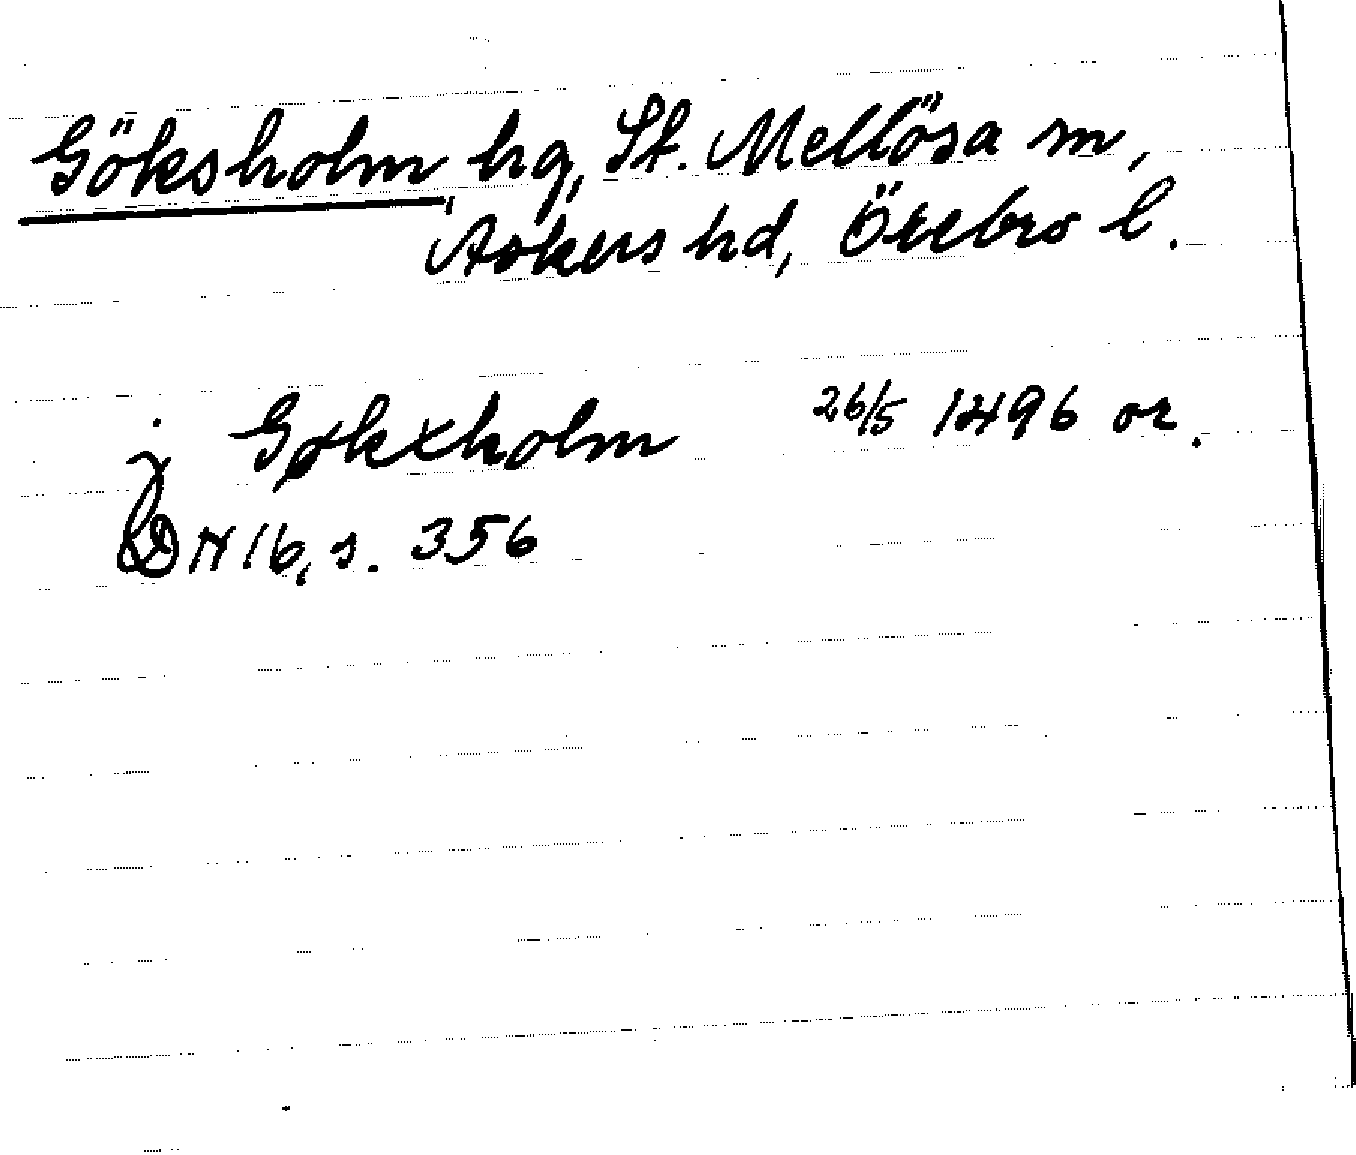 Göksholm hg, St. Mellösa sn,
Askers hd, Örebro l.
j Gøkxholm 26/5 1496 or.
DN 16, s. 356